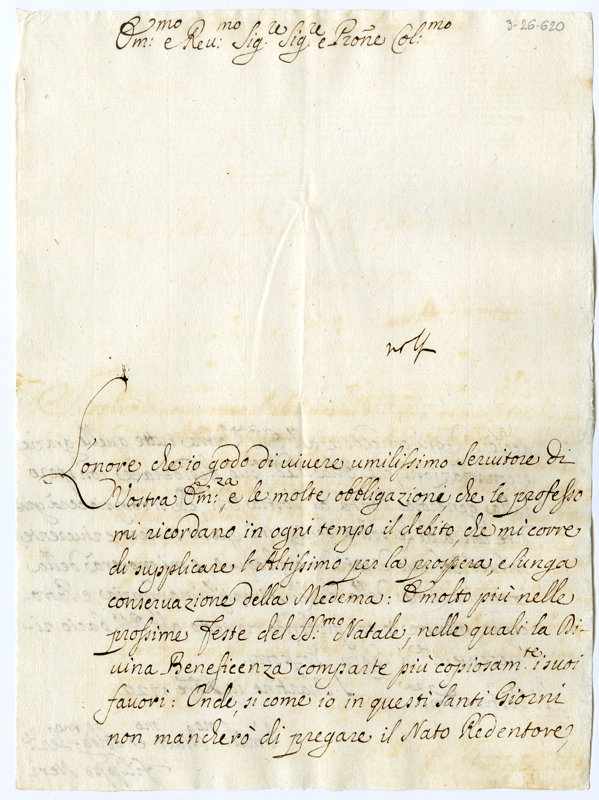 Em:mo e Reu:mo Sig:re Sig:re e Prone Col:mo
3-26-620
L'onore che io godo di vivere umilissimo Servitore di
Vostra Em:za, e le molte obbligazioni che le professo
mi ricordano in ogni tempo il debito, che mi corre
di supplicare l'Altissimo per la prospera, e lunga
conservazione della Medema: E molto più nelle
prossime Feste del SS:mo Natale, nelle quali la Di-
vina Beneficenza comparte più copiosam:te i suoi
favori: Onde, si come io in questi Santi Giorni
non mancherò di pregare il Nato Redentore,